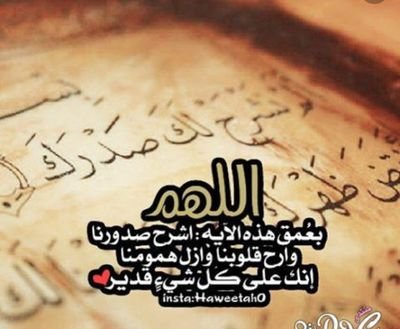 نشرح لك صدرك
ظهر
اللهم
بعُمق هذه الآيه : اشرح صدورنا
وارح قلوبنا وازل همومنا
إنك على كل شيءٍ قدير
insta:Haweetah0